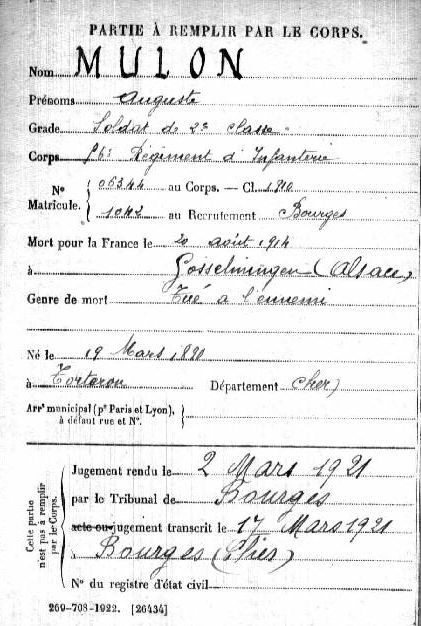 PARTIE À REMPLIR PAR LE CORPS.
Nom MULON
Prénoms Auguste
Grade Soldat de 2e classe
Corps 95e Régiment d'Infanterie
N° Matricule. { 06344 au Corps. — Cl. 1910
1042 au Recrutement Bourges
Mort pour la France le 20 août 1914
à Gosselmingen (Alsace)
Genre de mort Tué à l'ennemi
Né le 19 Mars 1890
à Torteron Département Cher)
Arrt municipal (pr Paris et Lyon), à défaut rue et N°. {
Cette partie n'est pas à remplir par le Corps. {
Jugement rendu le 2 Mars 1921
par le Tribunal de Bourges
acte ou jugement transcrit le 17 Mars 1921
à Bourges (Cher)
N° du registre d'état civil
269-708-1922. [26434]